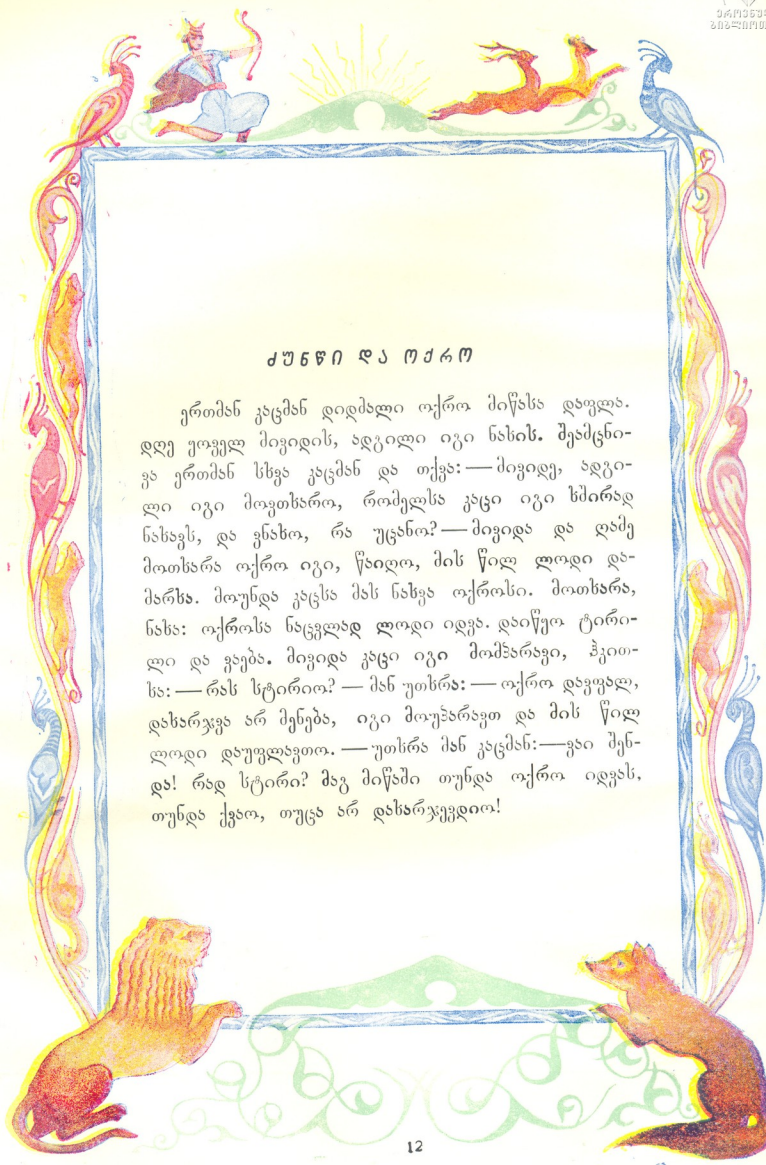 ძუნწი და ოქრო
ერთმან კაცმან დიდმალი ოქრო მიწასა დაფლა.
დღე ყოველ მივიდის, ადგილი იგი ნახის. შეამცნი-
ვა ერთმან სხვა კაცმან და თქვა: — მივიდე, ადგი-
ლი იგი მოვთხარო, რომელსა კაცი იგი ხშირად
ნახავს, და ვნახო, რა უცანო? — მივიდა და ღამე
მოთხარა ოქრო იგი, წაიღო, მის წილ ლოდი და-
მარხა. მოუნდა კაცსა მას ნახვა ოქროსი. მოთხარა,
ნახა: ოქროსა ნაცვლად ლოდი იდვა. დაიწყო ტირი-
ლი და ვაება. მივიდა კაცი იგი მომპარავი, ჰკით-
ხა: — რას სტირიო? — მან უთხრა: — ოქრო დავფალ,
დახარჯვა არ მენება, იგი მოუპარავთ და მის წილ
ლოდი დაუფლავთო. — უთხრა მან კაცმან: — ვაი შენ-
და! რად სტირი? მაგ მიწაში თუნდა ოქრო იდვას,
თუნდა ქვაო, თუცა არ დახარჯევდიო!
12